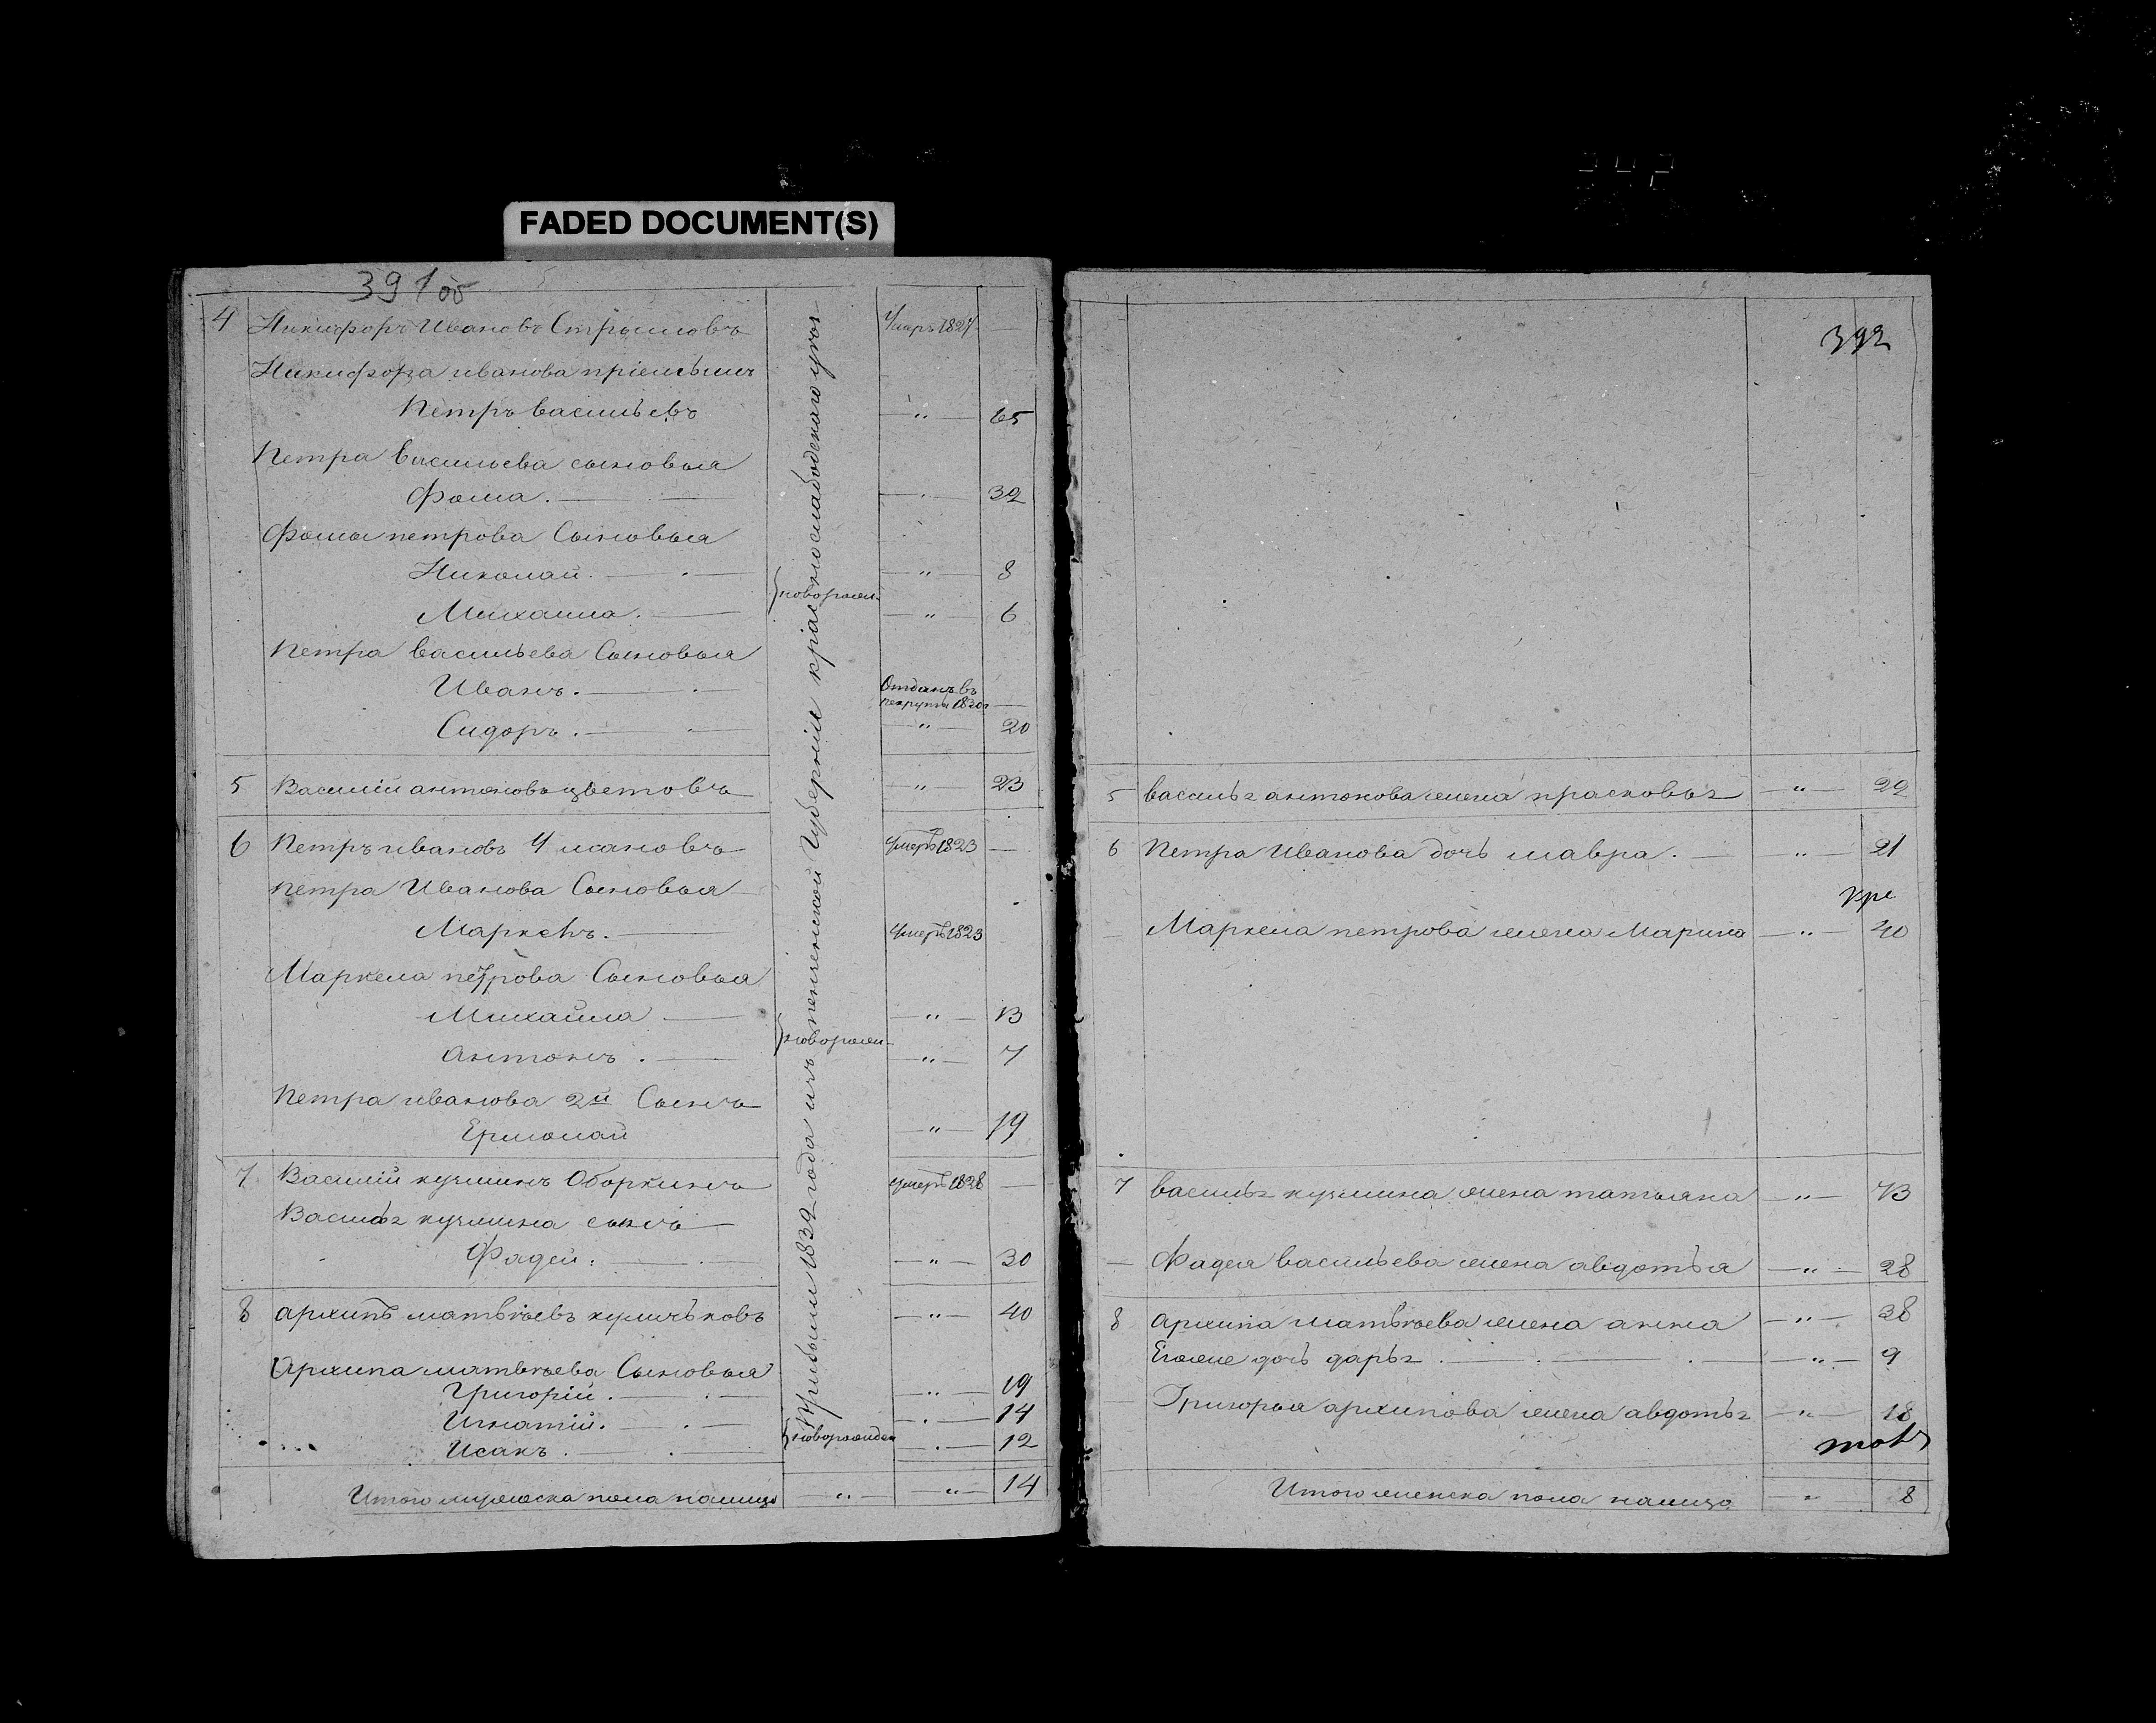 FADED DOCUMENT(S)
391 об
4 Никифоръ Ивановъ Умеръ 1827 —
Никифора иванова пріемышъ
Петръ васильевъ — " — 65
Петра васильева сыновья
Фома. — " — 32
Фомы петрова Сыновья
Николай. — " — 8
новорожд
Михаила. — " — 6
Петра васильева Сыновья
Иванъ. — Отданъ въ
рекруты —
Сидоръ. — " — 20
5 Василій антоновъ цветовъ — " — 23
6 Петръ ивановъ умеръ 1823 —
петра Иванова Сыновья
Маркелъ. — умеръ 1823
Маркела петрова Сыновья
Михайла — " — 13
новорожд
антонъ. — " — 7
Петра иванова 2й Сынъ
Ермолай — " — 19
7 Василій кузминъ Оборкинъ умеръ 1828 —
Василья кузмина сынъ —
Фадей. — " — 30
8 архипъ матвѣевъ куличковъ — " — 40
Архипа матвѣева Сыновья
Григорій. — " — 19
Игнатій. — " — 14
новорожден
Исакъ. — " — 12
Итого мужеска пола налицо — " — " — 14
Прибыли 1832 года изъ пензенской Губерніи краснослабодскаго уѣзда
392
5 василья антонова жена прасковья — " — 22
6 Петра Иванова дочь мавра. — " — 21
кре
— Маркела петрова жена Марина — " — 40
7 василья кузмина жена татьяна — " — 73
— Фадея васильева жена авдотья — " — 28
8 архипа матвѣева жена анна — " — 38
Егоже дочь дарья. — " — 9
— Григорья архипова жена авдотья — " — 18
товъ
Итого женска пола налицо — " — 8